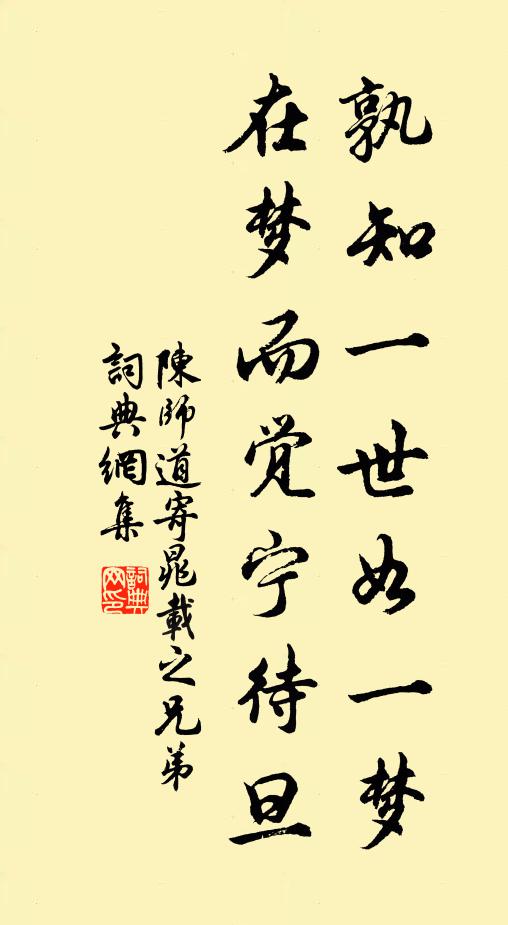 孰知一世如一梦
在梦而觉宁待旦
陳師道寄晁載之兄弟
詞典網集
詞典网印